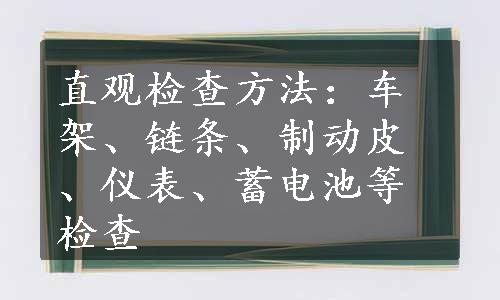 直观检查方法：车
架、链条、制动皮
、仪表、蓄电池等
检查